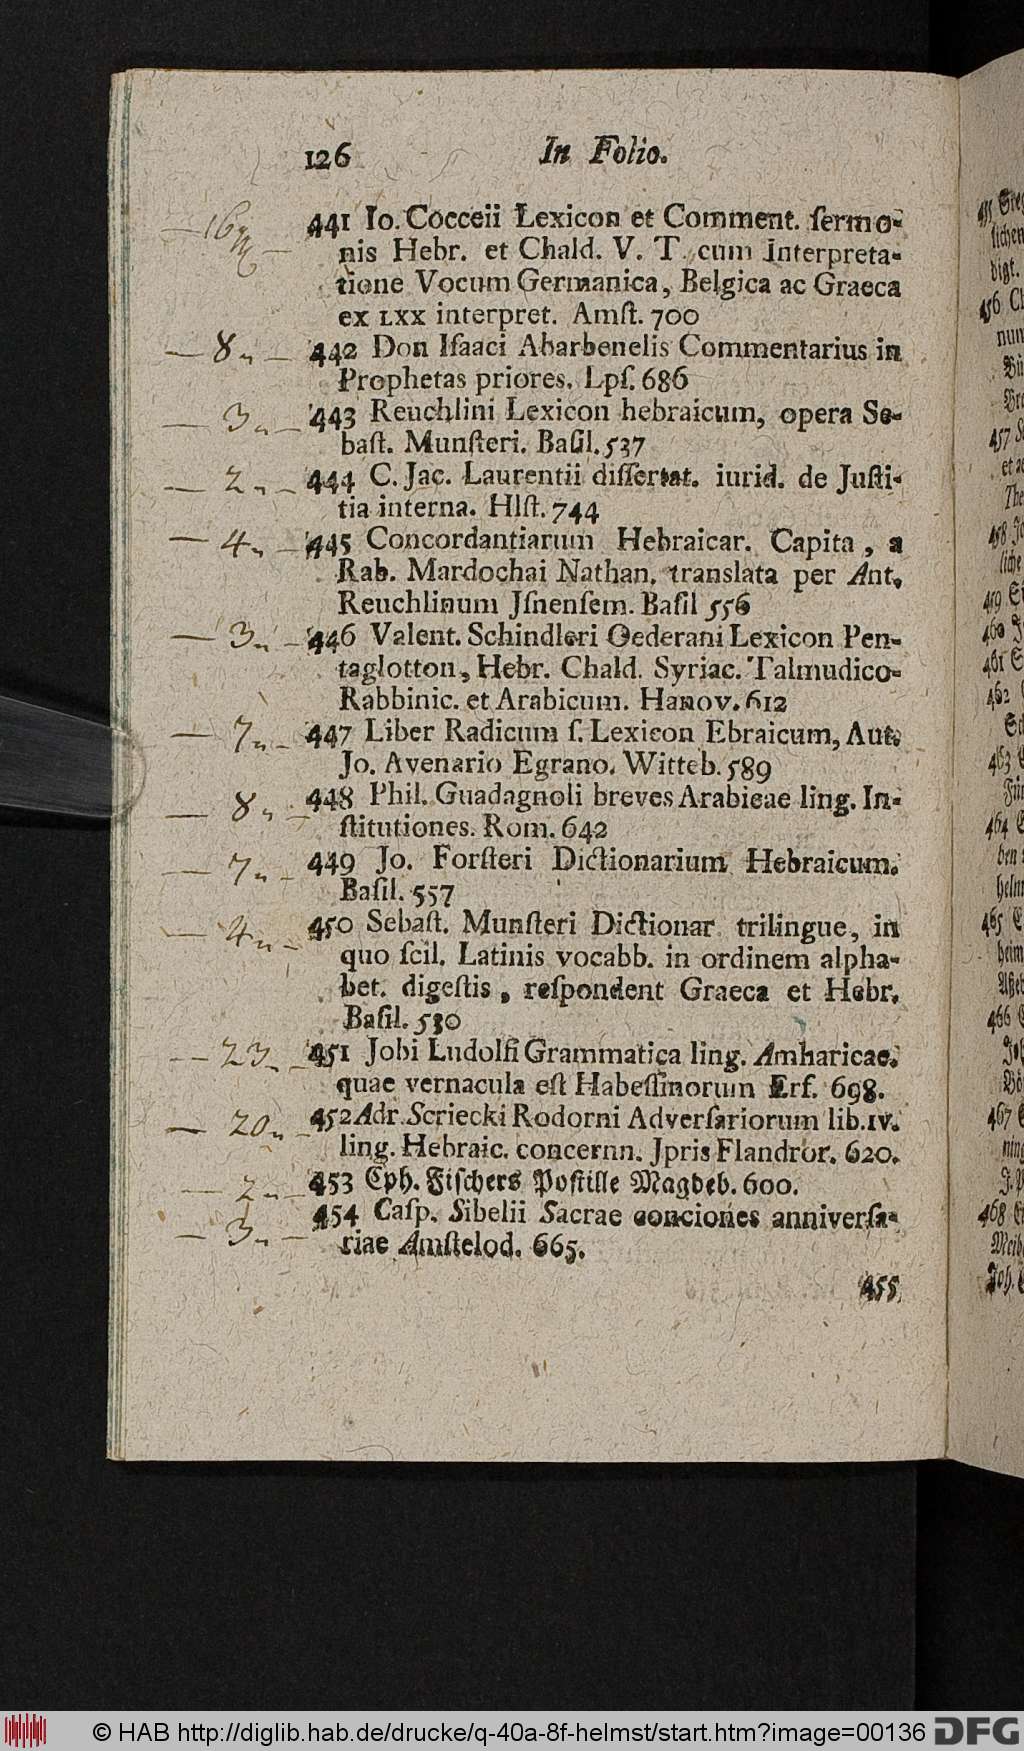 126 In Folio.
16 441 Io. Cocceii Lexicon et Comment. ſermo-
nis Hebr. et Chald. V. T cum Interpreta-
tione Vocum Germanica, Belgica ac Graeca
ex LXX interpret. Amſt. 700
— 8 — 442 Don Iſaaci Abarbenelis Commentarius in
Prophetas priores. Lpſ. 686
— 3 — 443 Reuchlini Lexicon hebraicum, opera Se-
baſt. Munſteri. Baſil. 537
— 2 — 444 C. Jac. Laurentii diſſertat. iurid. de Juſti-
tia interna. Hlſt. 744
— 4 — 445 Concordantiarum Hebraicar. Capita, a
Rab. Mardochai Nathan. translata per Ant.
Reuchlinum Jſnenſem. Baſil 556
— 3 — 446 Valent. Schindleri Oederani Lexicon Pen-
taglotton, Hebr. Chald. Syriac. Talmudico-
Rabbinic. et Arabicum. Hanov. 612
— 7 — 447 Liber Radicum ſ. Lexicon Ebraicum, Aut.
Jo. Avenario Egrano. Witteb. 589
— 8 — 448 Phil. Guadagnoli breves Arabicae ling. In-
ſtitutiones. Rom. 642
— 7 — 449 Jo. Forſteri Dictionarium Hebraicum.
Baſil. 557
— 4 — 450 Sebaſt. Munſteri Dictionar trilingue, in
quo ſcil. Latinis vocabb. in ordinem alpha-
bet. digeſtis, reſpondent Graeca et Hebr.
Baſil. 530
— 23 — 451 Jobi Ludolfi Grammatica ling. Amharicae.
quae vernacula eſt Habeſſinorum Erf. 698.
— 20 — 452 Adr. Scriecki Rodorni Adverſariorum lib. IV.
ling. Hebraic. concernn. Jpris Flandror. 620.
— 2 — 453 Eph. Fiſchers Poſtille Magdeb. 600.
— 3 — 454 Caſp. Sibelii Sacrae conciones anniverſa-
riae Amſtelod. 665.
455
© HAB http://diglib.hab.de/drucke/q-40a-8f-helmst/start.htm?image=00136 DFG